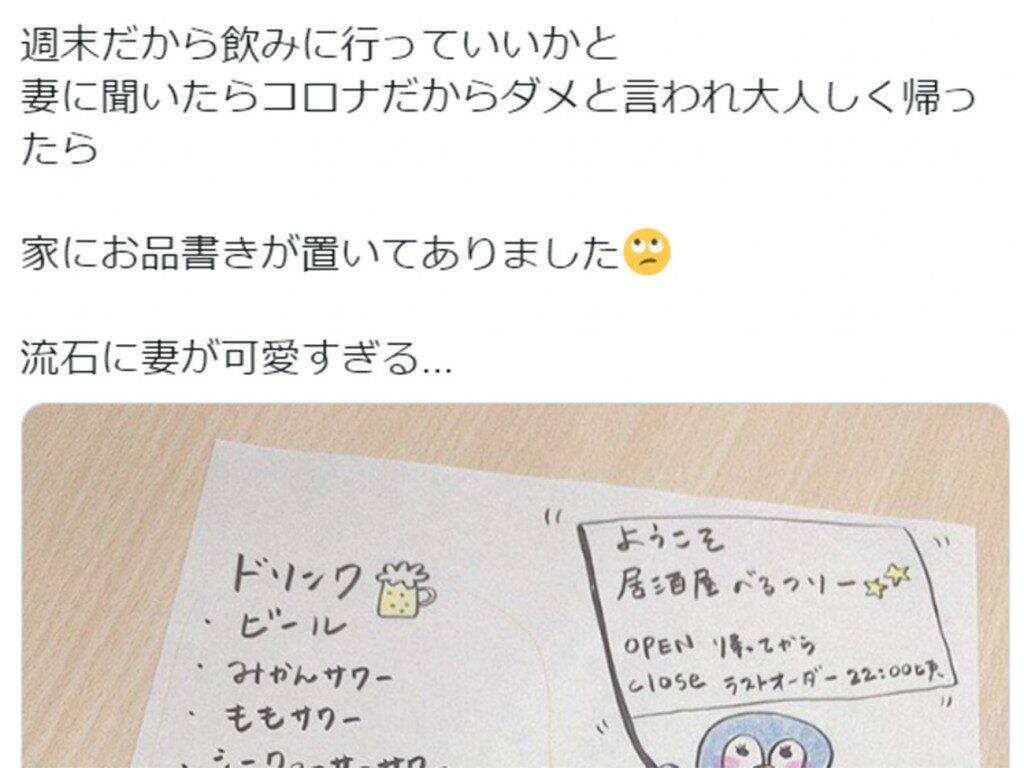 週末だから飲みに行っていいかと
妻に聞いたらコロナだからダメと言われ大人しく帰っ
たら
家にお品書きが置いてありました🙄
流石に妻が可愛すぎる...
ドリンク
・ビール
・みかんサワー
・ももサワー
・シークヮーサーサワー
ようこそ
居酒屋べるつりー
OPEN 帰ってから
close ラストオーダー 22:00頃